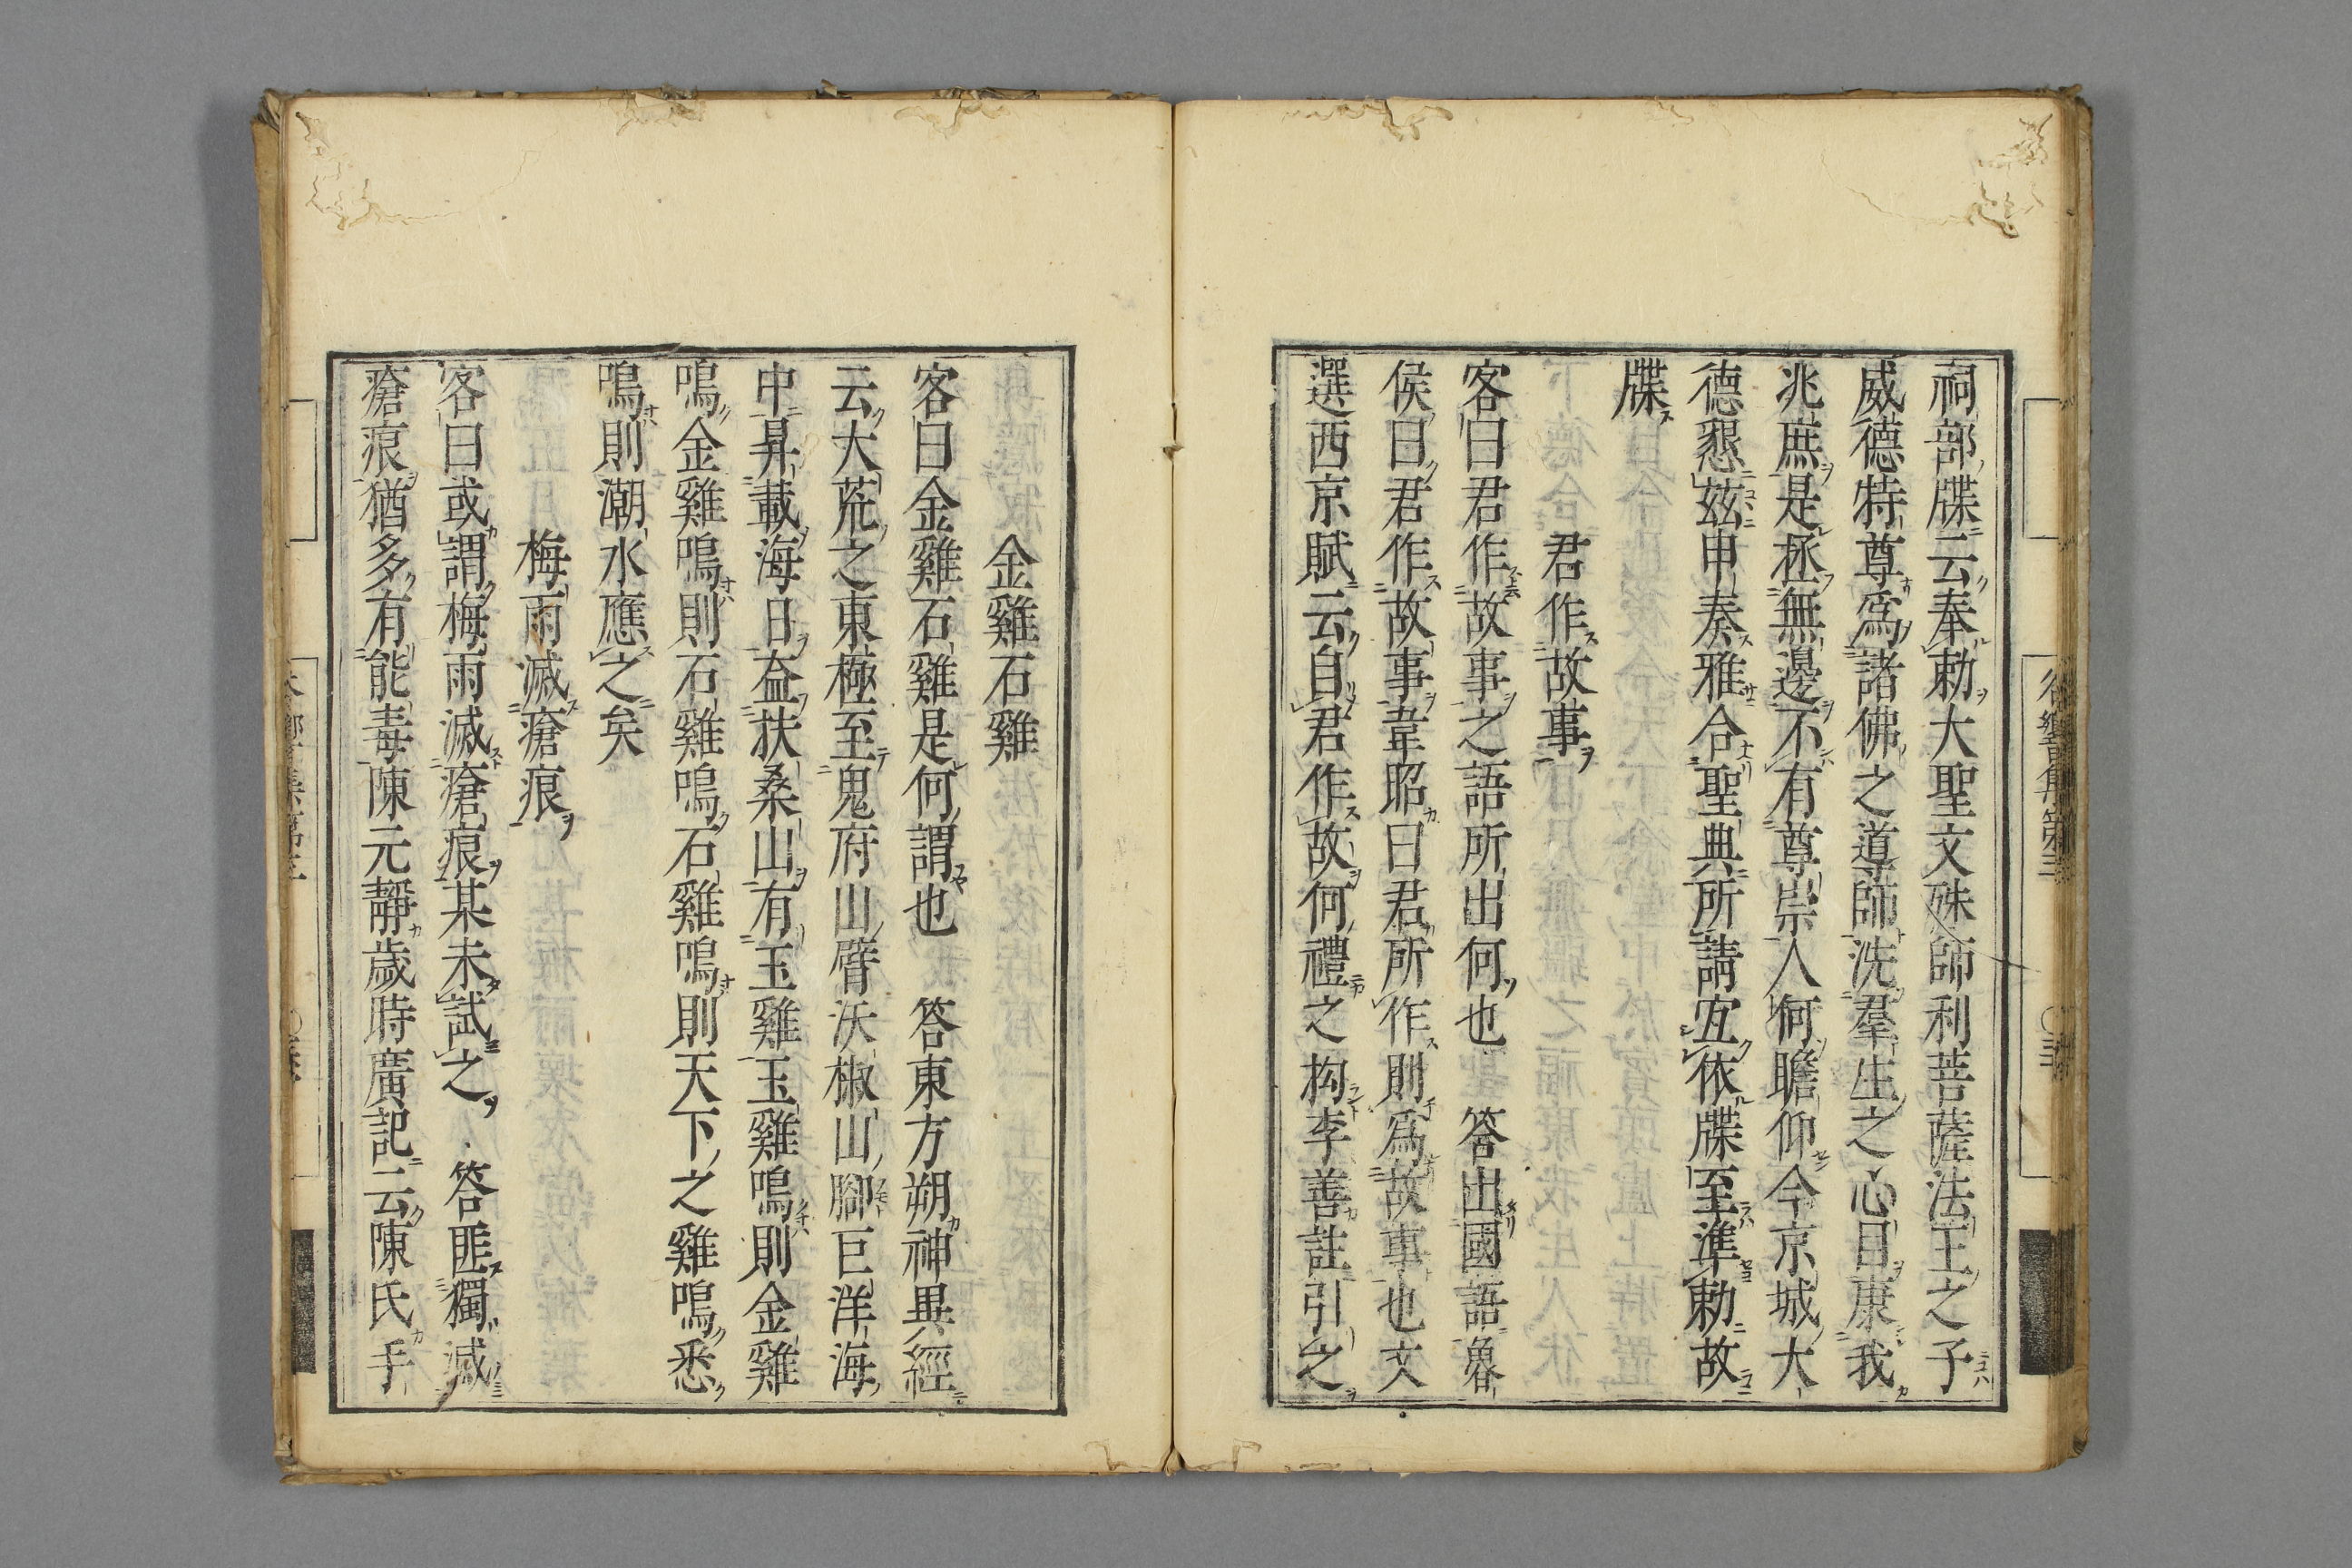 祠部牒云奉勅大聖文殊師利菩薩法王之子
威德特尊爲諸佛之導師洗羣生之心目康我
兆庶是拯無邊不有尊崇人何瞻仰今京城大
德懇玆申奏雅合聖典所請宜依牒至準勅故
牒
君作故事
客曰君作故事之語所出何也　答出國語魯
侯曰君作故事韋昭曰君所作則爲故事也文
選西京賦云自君作故何禮之拘李善註引之
金雞石雞
客曰金雞石雞是何謂也　答東方朔神異經
云大荒之東極至鬼府山臂沃椒山腳巨洋海
中昇載海日益扶桑山有玉雞玉雞鳴則金雞
鳴金雞鳴則石雞鳴石雞鳴則天下之雞鳴悉
鳴則潮水應之矣
梅雨滅瘡痕
客曰或謂梅雨滅瘡痕某未試之　答匪獨滅
瘡痕猶多有能毒陳元靜歲時廣記云陳氏手